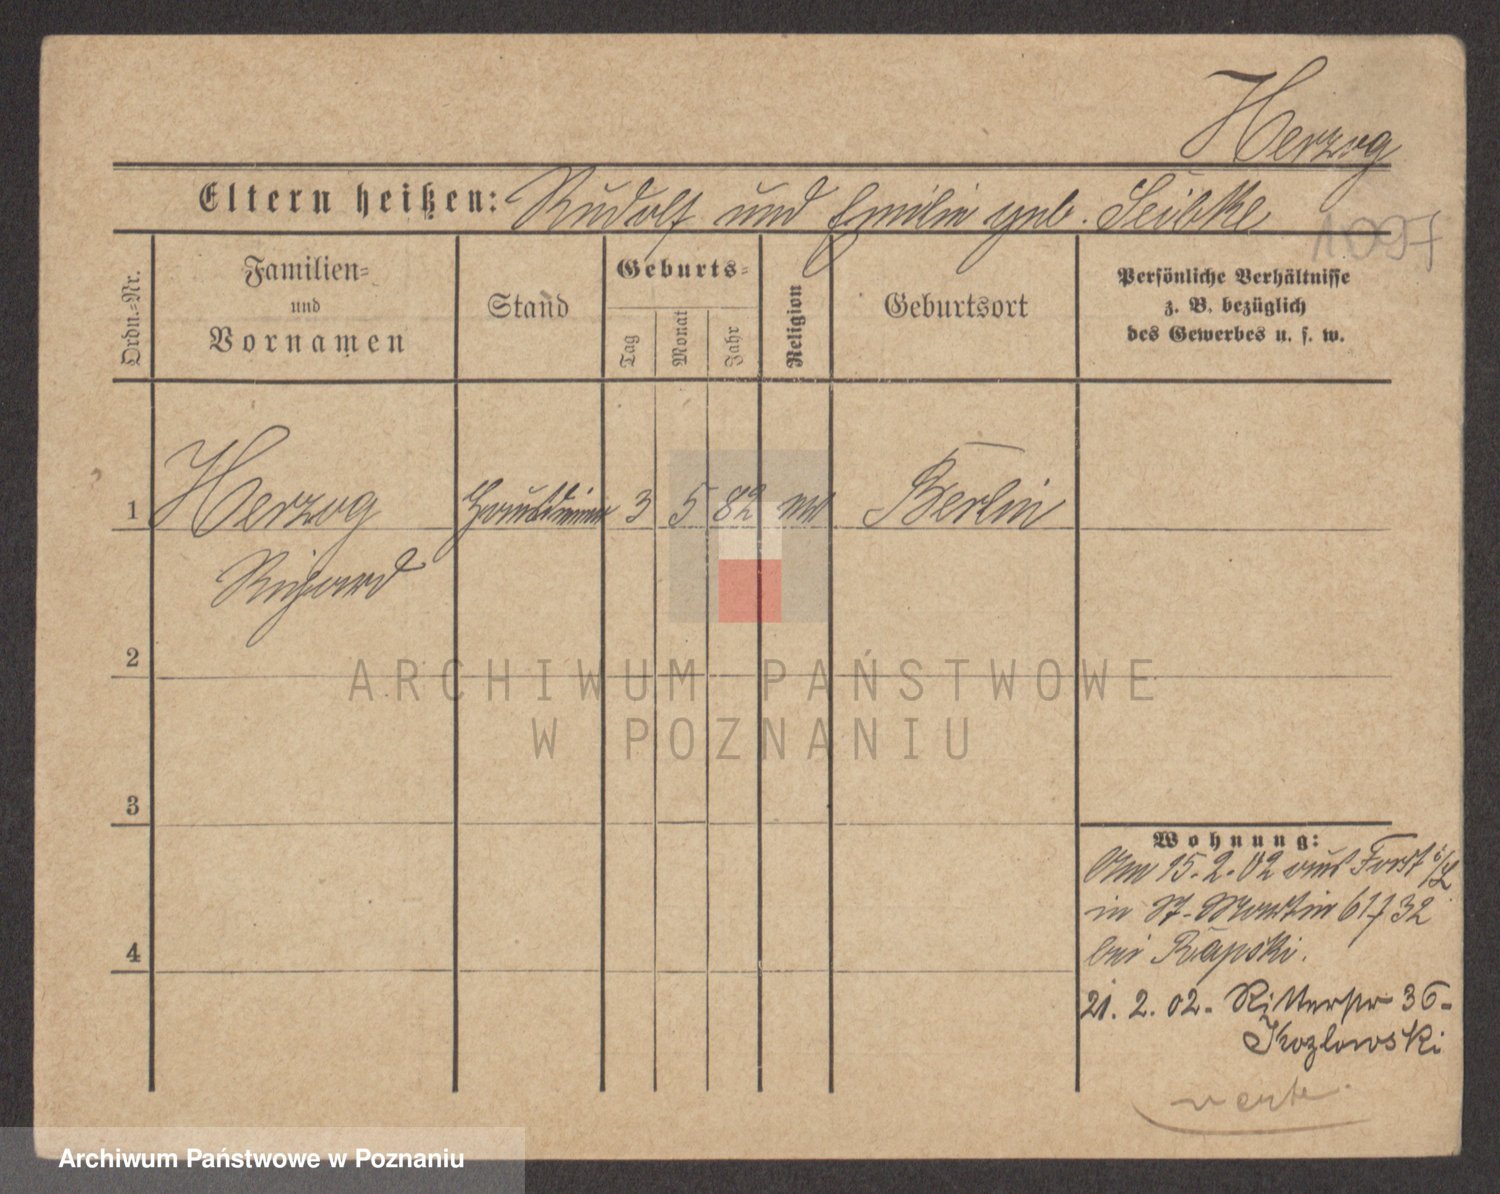 Herzog
Eltern heißen: Rudolf und Emilie geb. Seibke
1097
Ordn.-Nr.
Familien-
und
Vornamen
Stand
Geburts-
Tag
Monat
Jahr
Religion
Geburtsort
Persönliche Verhältnisse
z. B. bezüglich
des Gewerbes u. s. w.
1 Herzog Hausdiener 3 5 82 ev Berlin
Richard
2
3
4
Wohnung:
Am 15.2.02 aus Forst i/L
in St. Martin 61 f 32
bei Rzapski.
21.2.02. Ritterstr 36-
Kozlowski
verte
ARCHIWUM PAŃSTWOWE
W POZNANIU
Archiwum Państwowe w Poznaniu